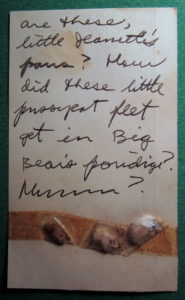 are these,
little Jeanette's
paws? How
did these little
pussycat feet
get in Big
Bear's porridge?
Mmmm?